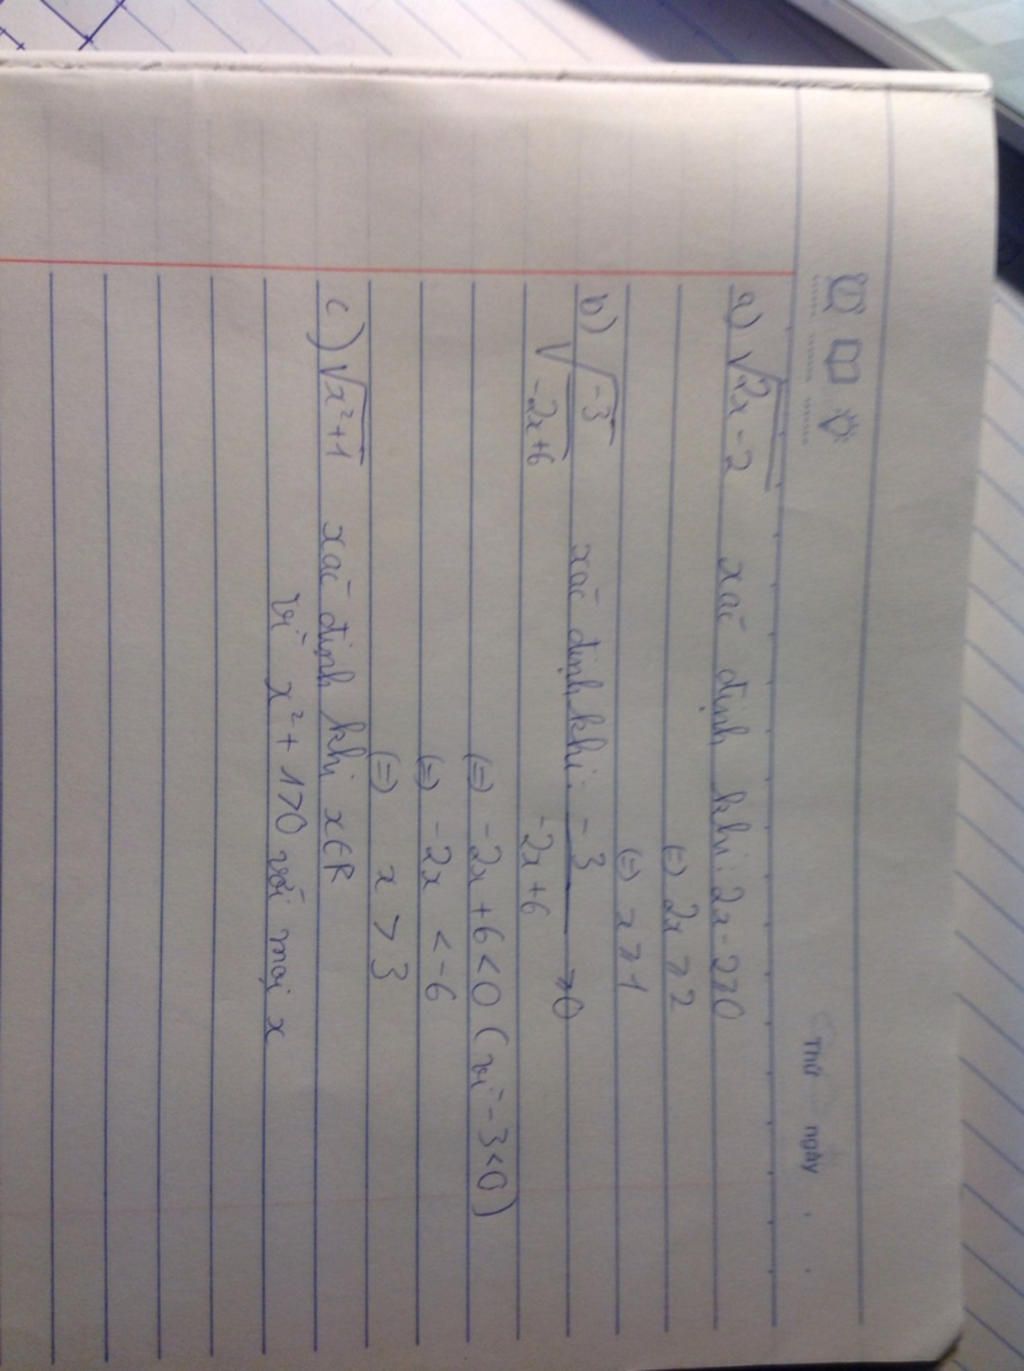 Thứ ngày
a) √2x-2 xác định khi: 2x-2≥0
(=) 2x ≥ 2
(=) x ≥ 1
b) √-3/√-2x+6 xác định khi: -3/-2x+6 ≥0
(=) -2x+6<0 (vì -3<0)
(=) -2x < -6
(=) x > 3
c) √x²+1 xác định khi x∈R
vì x²+1>0 với mọi x